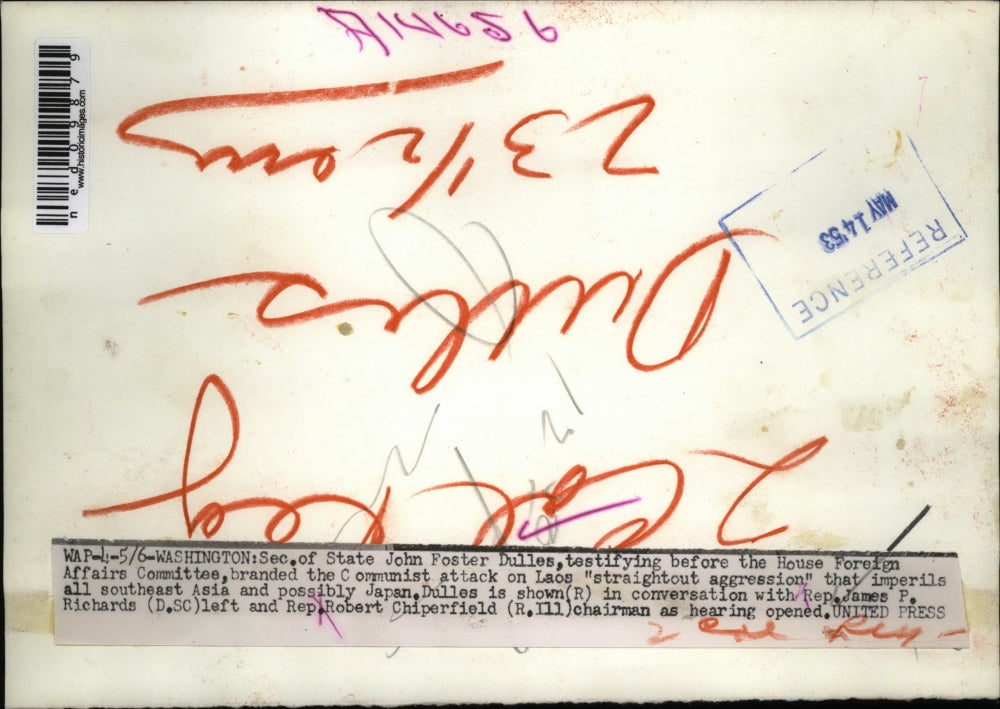 WAP-4-5/6-WASHINGTON:Sec.of State John Foster Dulles,testifying before the House Foreign
Affairs Committee,branded the Communist attack on Laos "straightout aggression" that imperils
all southeast Asia and possibly Japan.Dulles is shown(R) in conversation with Rep.James P.
Richards (D.SC)left and Rep.Robert Chiperfield (R.Ill)chairman as hearing opened.UNITED PRESS
2 Col Key
2 Col Key
Dulles
23 1/2 ems
REFERENCE
MAY 14 '53
ned098879
www.historicimages.com